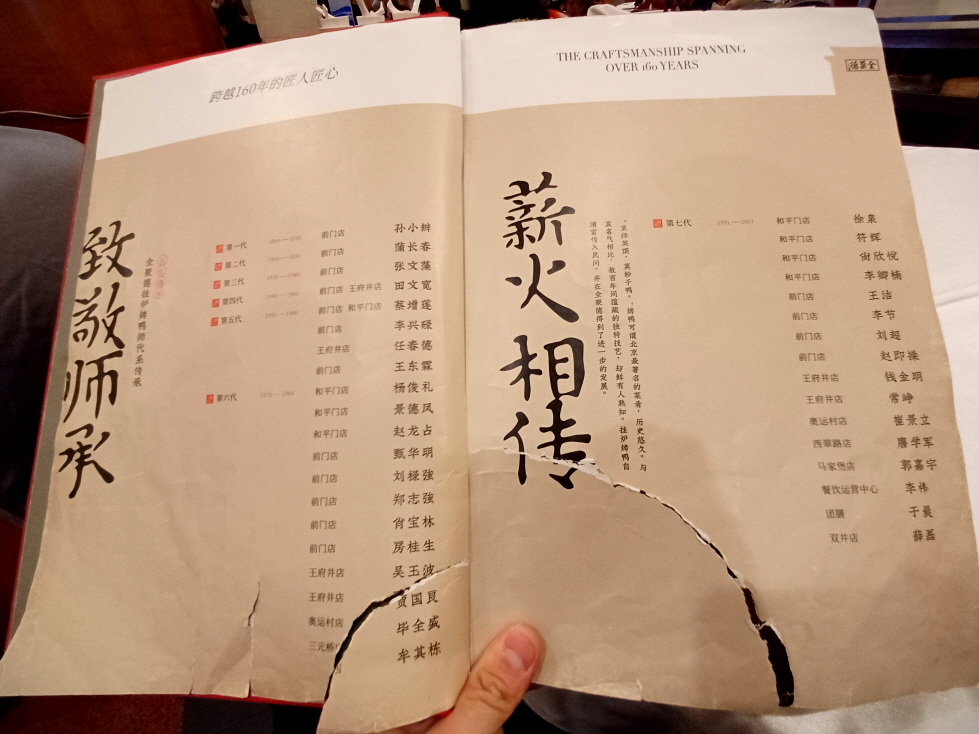 跨越160年的匠人匠心
致敬师承
全聚德挂炉烤鸭师代系传承
第一代 前门店 孙小辫
第二代 前门店 蒲长春
第三代 前门店 张文藻
第四代 前门店 王府井店 田文宽
第五代 前门店 和平门店 蔡增莲
前门店 李兴
王府井店 任春德
前门店 王东霖
第六代 和平门店 杨俊礼
和平门店 景德凤
和平门店 赵龙占
前门店 甄华明
前门店 刘禄強
前门店 郑志強
前门店 宝林
前门店 房桂生
王府井店 吴玉波
王府井店 贾国良
奥运村店 毕全盛
三元桥 牟其栋
THE CRAFTSMANSHIP SPANNING
OVER 160 YEARS
全聚德
薪火相传
“京师英撰，莫妙于鸭。”烤鸭可谓北京最著名的菜肴，历史悠久。与
其名气相比，数百年间蕴藏的独特技艺，却鲜有人熟知。挂炉烤鸭自
清宫传入民间，并在全聚德得到了进一步的发展。
第七代 和平门店 徐
和平门店 符辉
和平门店 欣悦
和平门店 李卿楠
前门店 王洁
前门店 李节
前门店 刘超
前门店 赵即操
王府井店 钱金明
王府井店 常峥
奥运村店 崔景立
西翠路店 唐学军
马家堡店 郭嘉宇
餐饮运营中心 李祎
团膳 于晨
双井店 薛磊